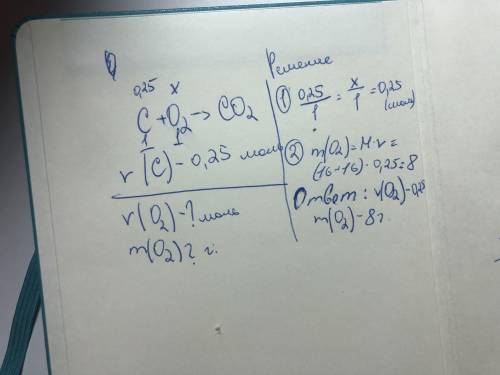 0,25 x
C + O₂ → CO₂
1 1
ν(C) - 0,25 моль
ν(O₂) - ? моль
m(O₂) ? г.
Решение
① 0,25/1 = x/1 = 0,25 (моль)
② m(O₂) = M · ν =
(16+16) · 0,25 = 8
Ответ: ν(O₂) - 0,25
m(O₂) - 8 г.